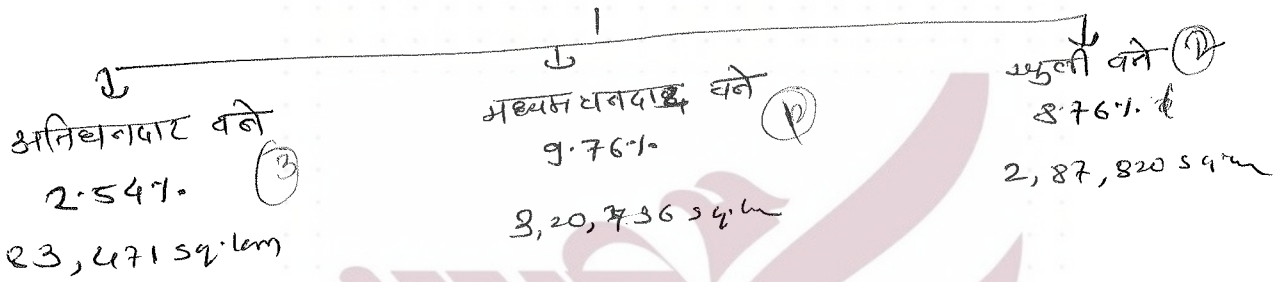 अतिघनदार वने
2.54%.
③
83,471 sq.km
मध्यम घनदाट वने
9.76%
①
3,20,736 sq.km
खुली वने ②
8.76%.
2,87,820 sq.km